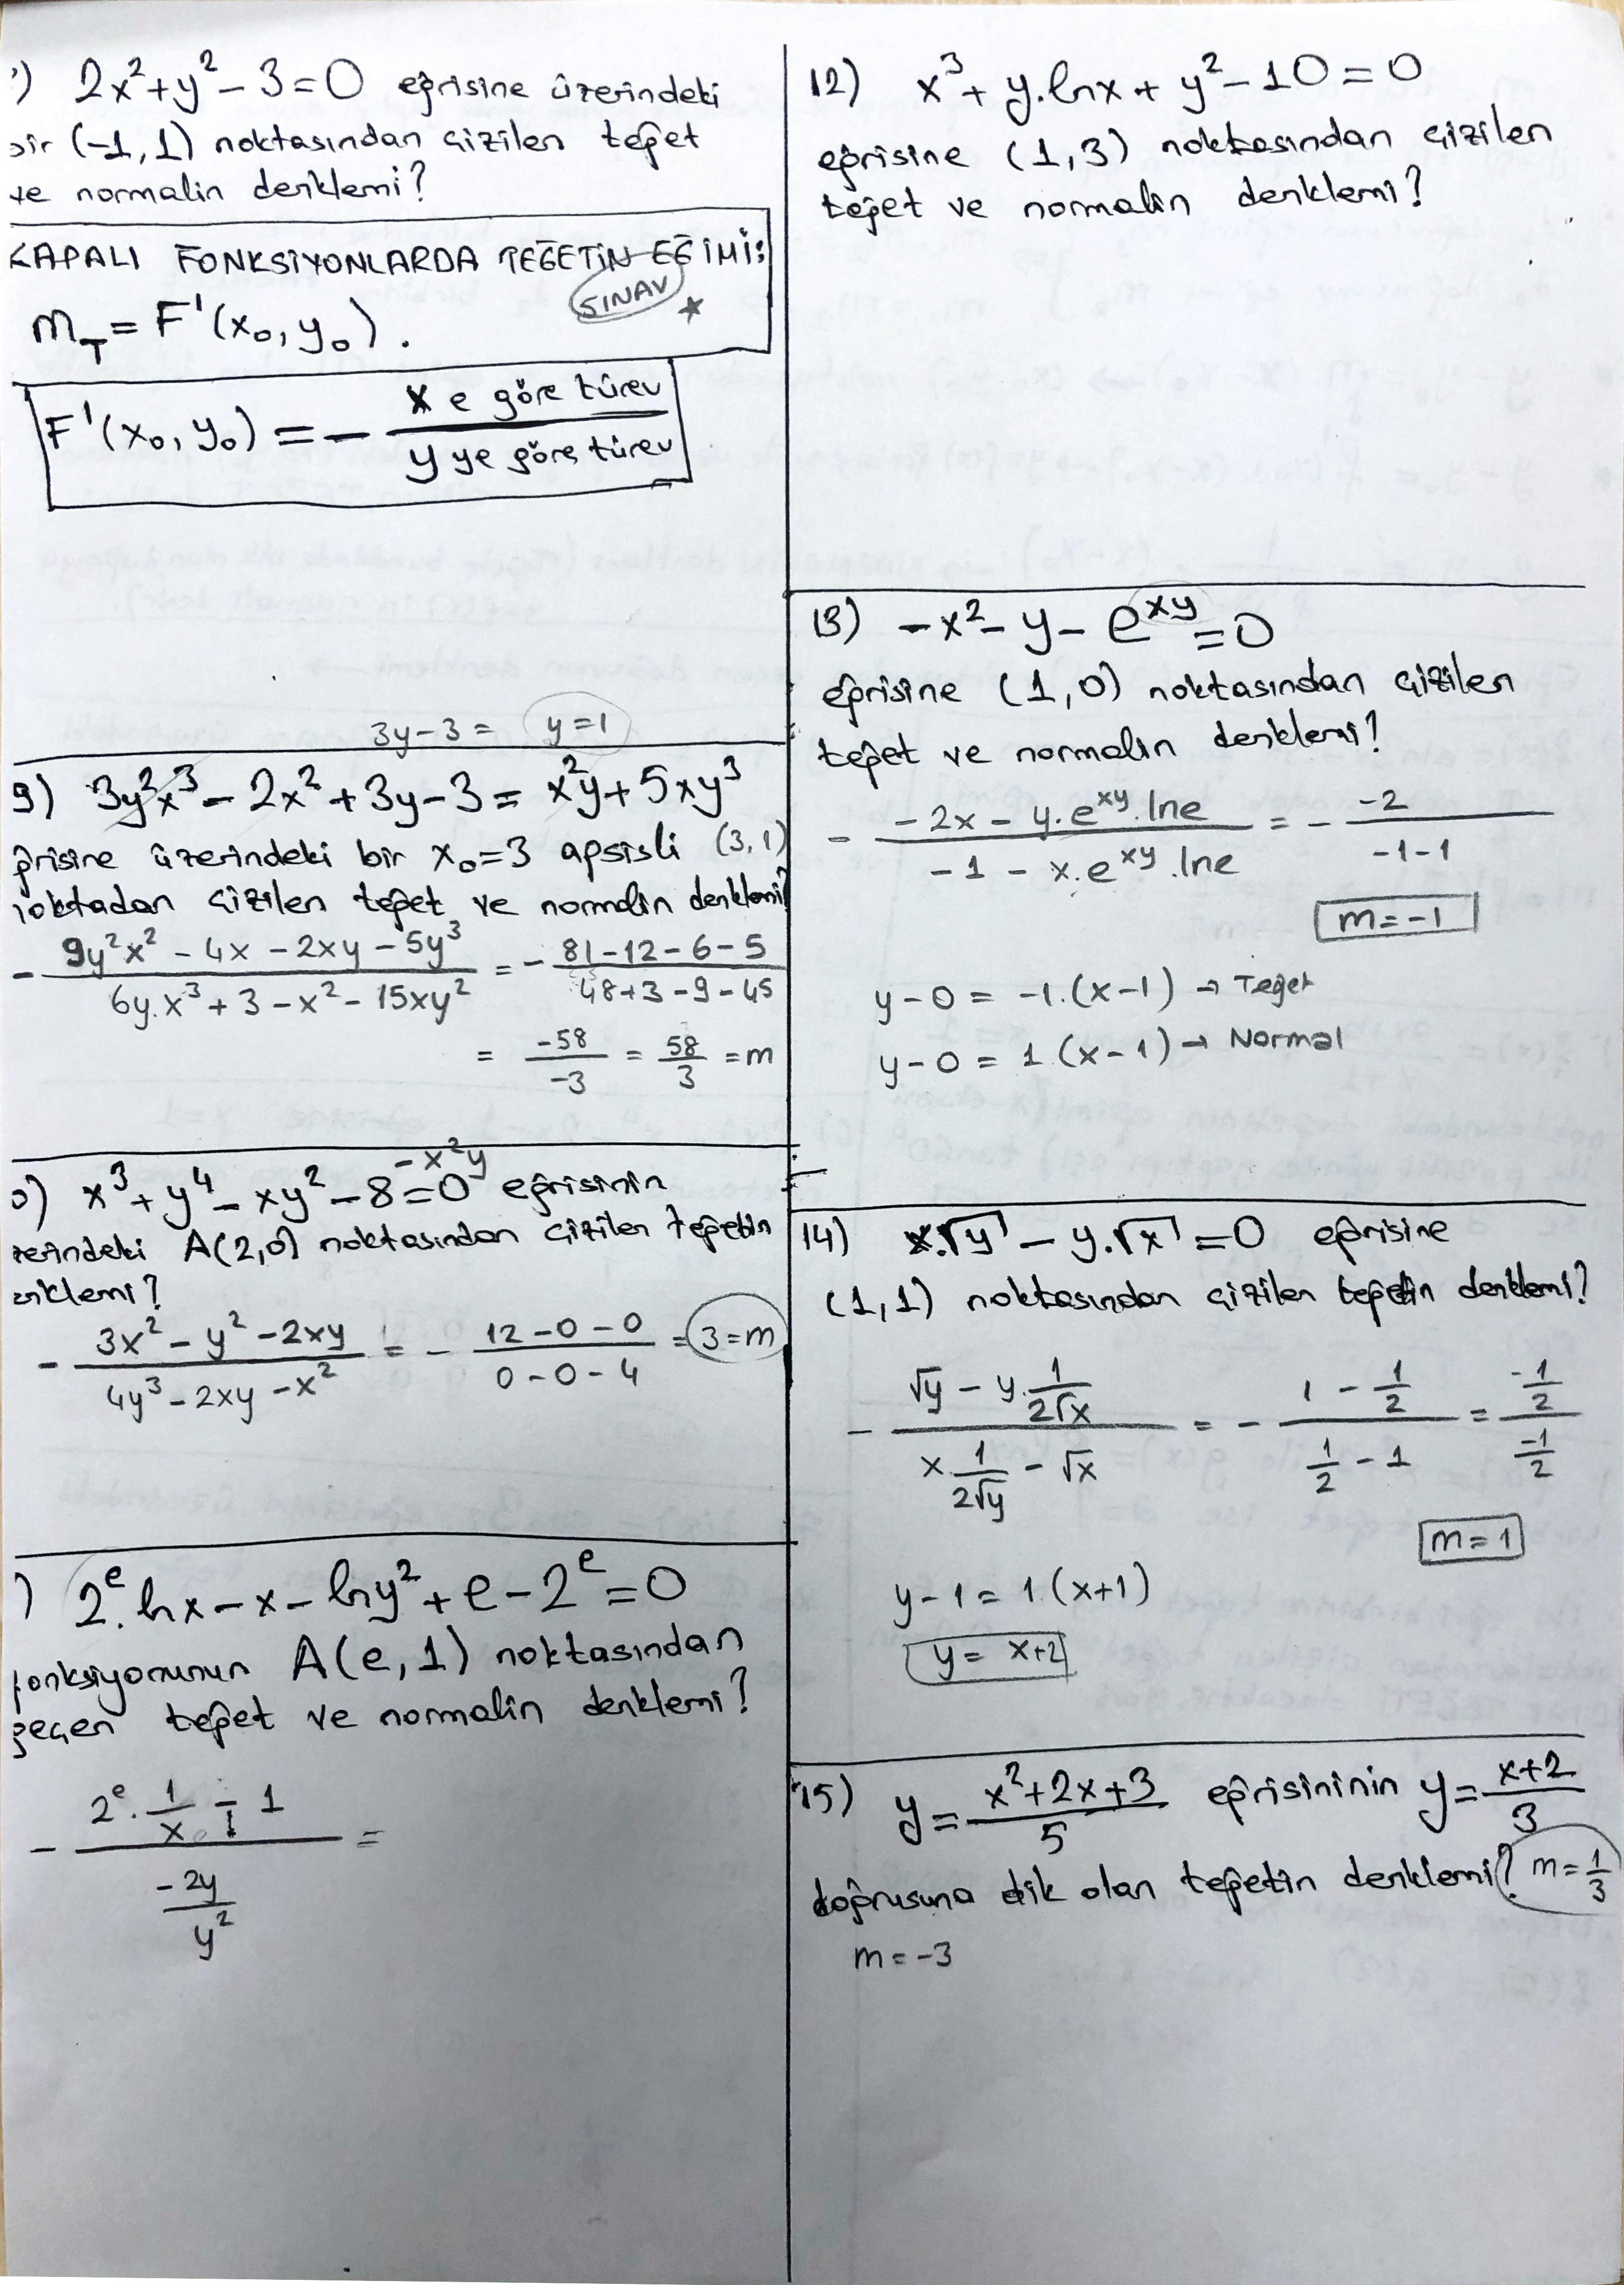 ) 2x²+y²-3=0 eğrisine üzerindeki
bir (-1,1) noktasından çizilen teğet
ve normalin denklemi?
KAPALI FONKSİYONLARDA TEĞETİN EĞİMİ:
SINAV ★
m_T = F'(x₀, y₀).
F'(x₀, y₀) = - x e göre türev / y ye göre türev
3y-3 = y=1
9) 3y²x³ - 2x² + 3y - 3 = x²y + 5xy³
ğrisine üzerindeki bir x₀=3 apsisli (3,1)
noktadan çizilen teğet ve normalin denklemi?
- (9y²x² - 4x - 2xy - 5y³) / (6y.x³ + 3 - x² - 15xy²) = - (81-12-6-5) / (48+3-9-45)
= -58/-3 = 58/3 = m
-x²y
0) x³ + y⁴ - xy² - 8 = 0 eğrisinin
zerindeki A(2,0) noktasından çizilen teğetin
enklemi?
- (3x² - y² - 2xy) / (4y³ - 2xy - x²) = - (12-0-0) / (0-0-4) = 3=m
) 2^e.lnx - x - lny² + e - 2^e = 0
fonksiyonunun A(e,1) noktasından
geçen teğet ve normalin denklemi?
- (2^e . 1/x - 1) / (-2y/y²) =
12) x³ + y.lnx + y² - 10 = 0
eğrisine (1,3) noktasından çizilen
teğet ve normalin denklemi?
13) -x² - y - e^xy = 0
eğrisine (1,0) noktasından çizilen
teğet ve normalin denklemi?
- (-2x - y.e^xy.lne) / (-1 - x.e^xy.lne) = - (-2) / (-1-1)
m=-1
y-0 = -1.(x-1) → Teğet
y-0 = 1.(x-1) → Normal
14) x.√y - y.√x = 0 eğrisine
(1,1) noktasından çizilen teğetin denklemi?
- (√y - y.1/2√x) / (x.1/2√y - √x) = - (1 - 1/2) / (1/2 - 1) = (-1/2) / (-1/2)
m=1
y-1 = 1.(x+1)
y = x+2
15) y = (x²+2x+3)/5 eğrisininin y = (x+2)/3
doğrusuna dik olan teğetin denklemi? m=1/3
m=-3